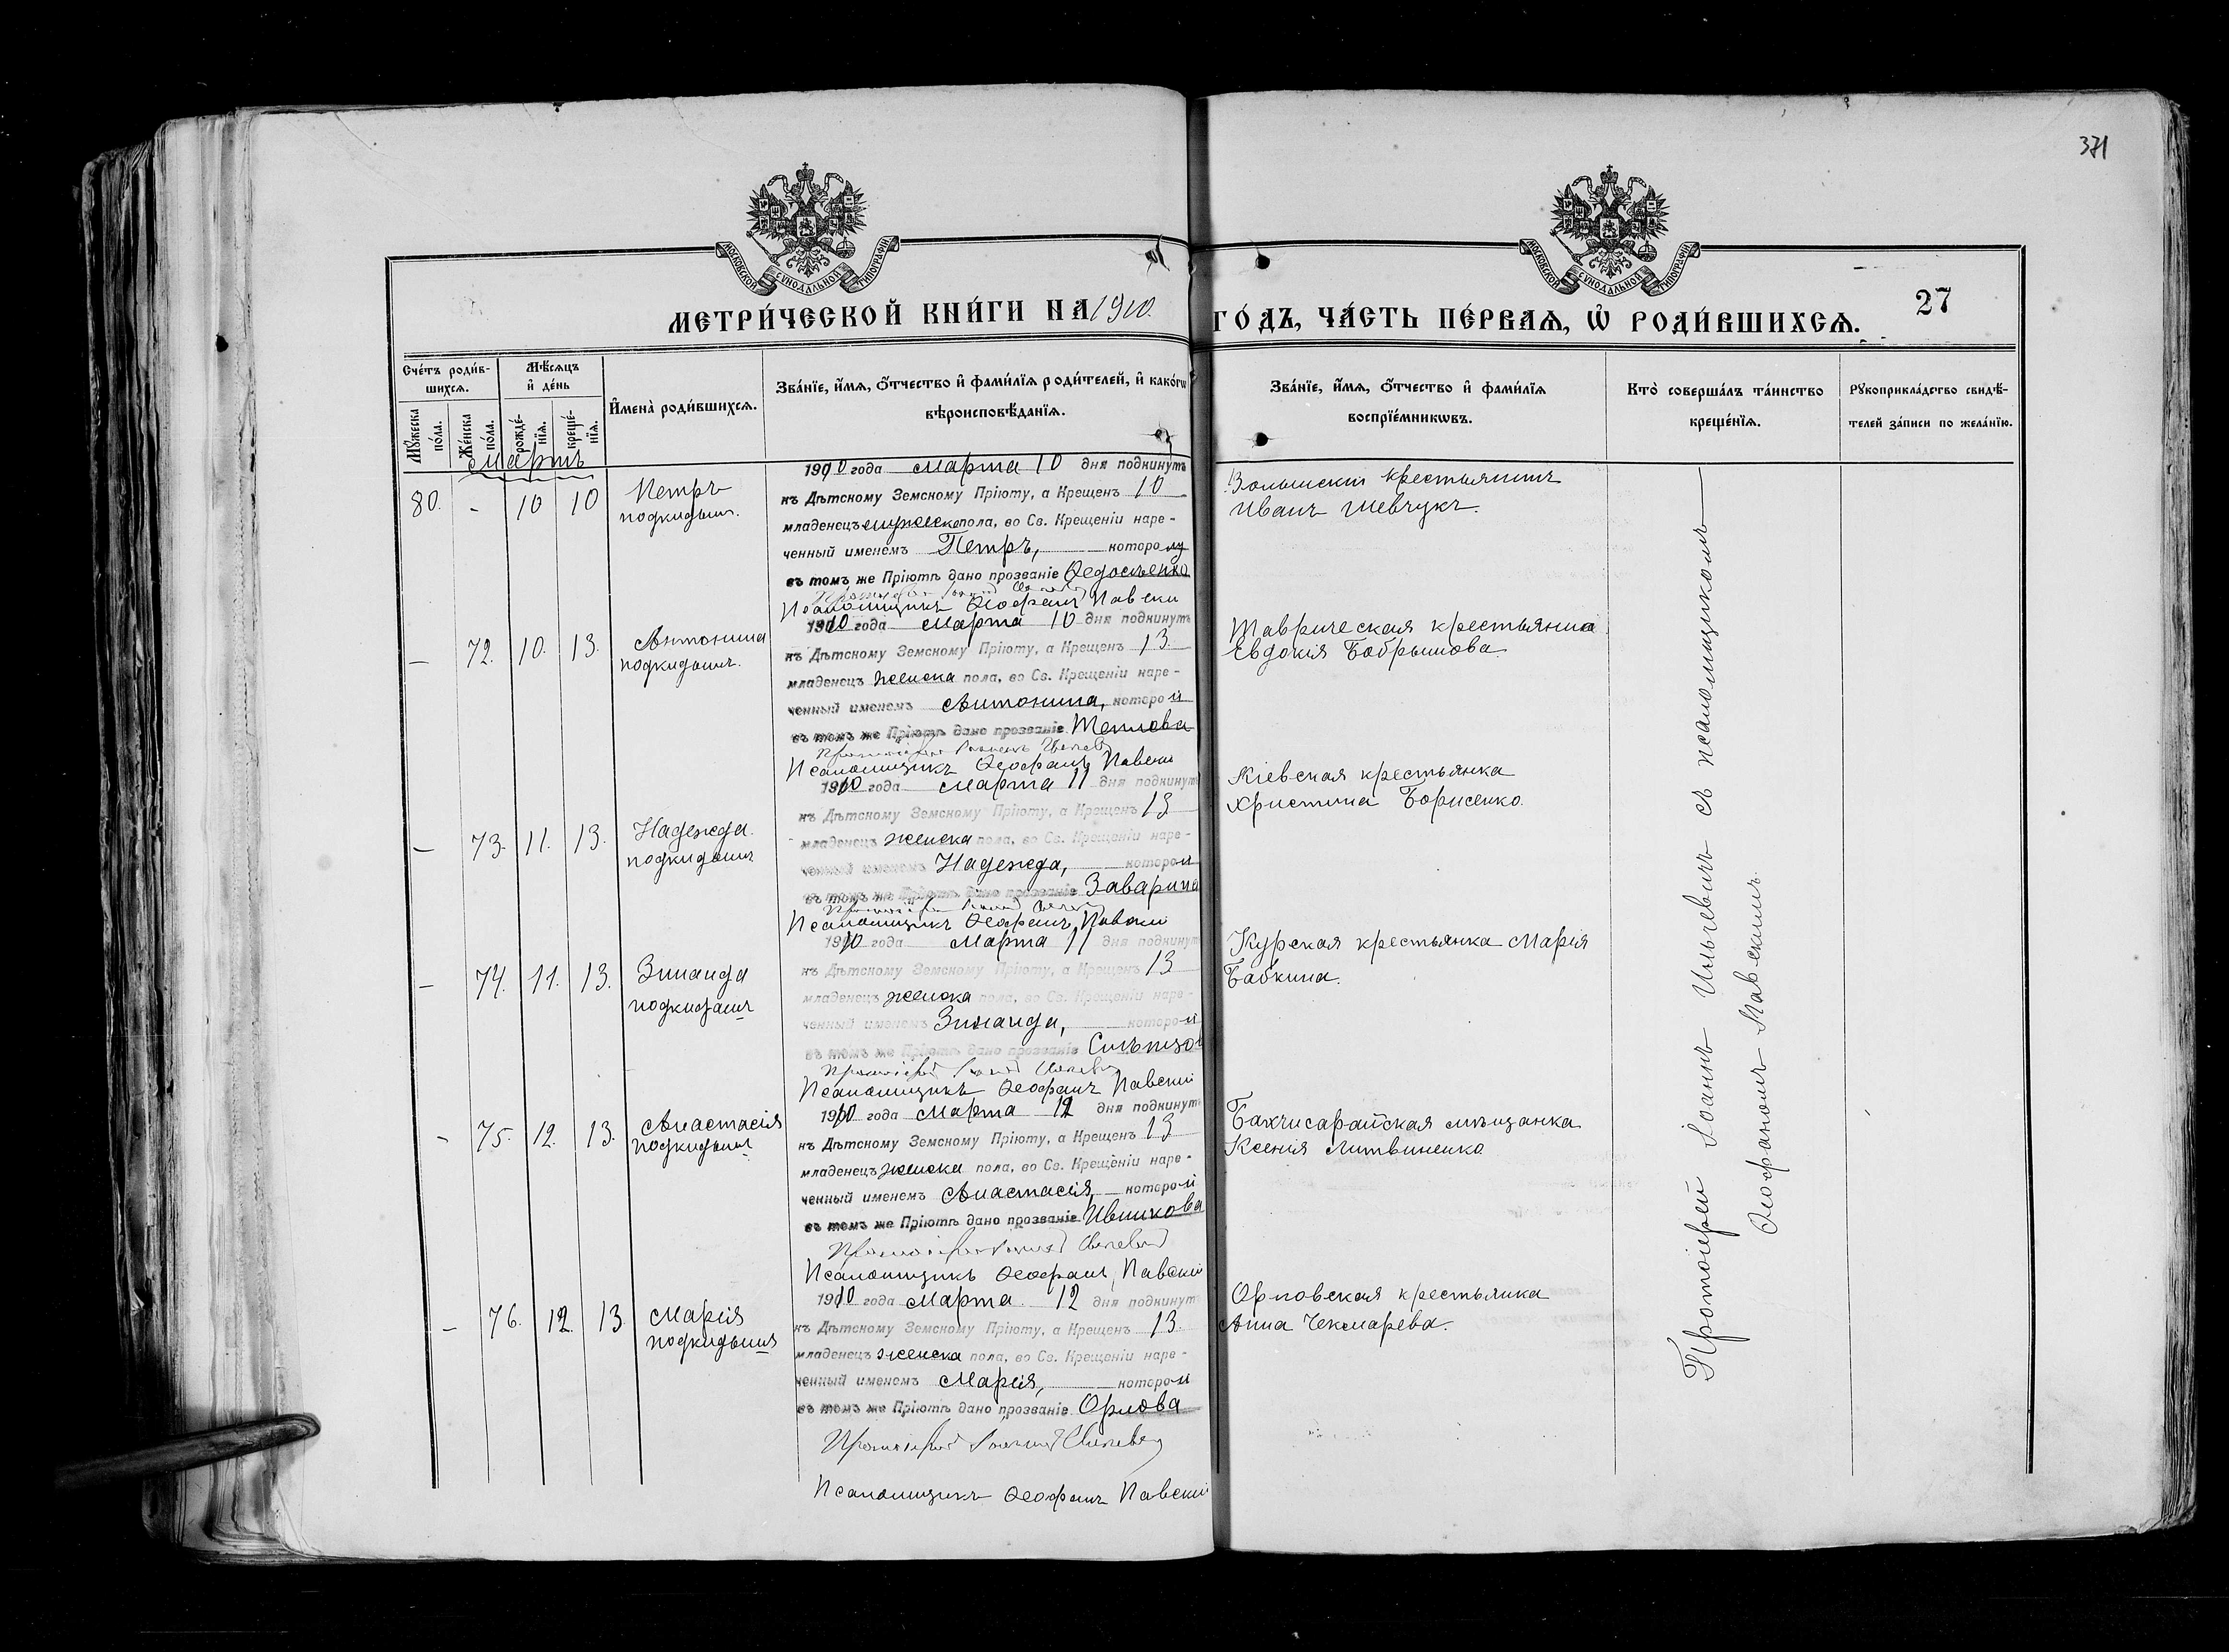 371
МОСКОВСКОЙ СѴНОДАЛЬНОЙ ТИПОГРАФІИ
МОСКОВСКОЙ СѴНОДАЛЬНОЙ ТИПОГРАФІИ
МЕТРИ́ЧЕСКОЙ КНИ́ГИ НА 1910.
ГО́ДЪ, ЧА́СТЬ ПЕ́РВАѦ, Ѡ҆ РОДИ́ВШИХСѦ. 27
Счéтъ роди́в-
шихсѧ.
Мꙋ́жеска
по́ла.
Жéнска
по́ла.
Мѣ́сѧцъ
и҆ дéнь
рождé-
нїѧ.
крещé-
нїѧ.
И҆мена̀ роди́вшихсѧ.
Зва́нїе, и҆́мѧ, ѻ҆́тчество и҆ фами́лїѧ роди́телей, и҆ како́гѡ
вѣроисповѣ́данїѧ.
Зва́нїе, и҆́мѧ, ѻ҆́тчество и҆ фами́лїѧ
воспрїéмникѡвъ.
Кто̀ соверша́лъ та́инство
крещéнїѧ.
Рꙋкоприкла́дство свидѣ́-
телей за́писи по жела́нїю.
Мартъ
80. - 10 10 Петръ
подкидышъ.
1910 года Марта 10 дня подкинутъ
къ Дѣтскому Земскому Пріюту, а Крещенъ 10
младенецъ мужеска пола, во Св. Крещеніи наре-
ченный именемъ Петръ, которому
въ томъ же Пріютѣ дано прозваніе Ѳедосѣенко
Псаломщикъ Ѳеофанъ Павскій
Волынскій крестьянинъ
Иванъ Шевчукъ.
— 72. 10. 13. Антонина
подкидышъ.
1910 года Марта 10 дня подкинутъ
къ Дѣтскому Земскому Пріюту, а Крещенъ 13
младенецъ женска пола, во Св. Крещеніи наре-
ченный именемъ Антонина, которой
въ томъ же Пріютѣ дано прозваніе Теплова
Псаломщикъ Ѳеофанъ Павскій
Таврическая крестьянка
Евдокія Бобрышова.
— 73. 11. 13. Надежда.
подкидышъ
1910 года Марта 11 дня подкинутъ
къ Дѣтскому Земскому Пріюту, а Крещенъ 13
младенецъ женска пола, во Св. Крещеніи наре-
ченный именемъ Надежда, которой
въ томъ же Пріютѣ дано прозваніе Заварина
Псаломщикъ Ѳеофанъ Павскій
Кіевская крестьянка
Христина Борисенко.
— 74. 11. 13. Зинаида
подкидышъ
1910 года Марта 11 дня подкинутъ
къ Дѣтскому Земскому Пріюту, а Крещенъ 13
младенецъ женска пола, во Св. Крещеніи наре-
ченный именемъ Зинаида, которой
въ томъ же Пріютѣ дано прозваніе
Псаломщикъ Ѳеофанъ Павскій
Курская крестьянка Марія
Бабкина.
- 75. 12. 13. Анастасія
подкидышъ
1910 года Марта 12 дня подкинутъ
къ Дѣтскому Земскому Пріюту, а Крещенъ 13
младенецъ женска пола, во Св. Крещеніи наре-
ченный именемъ Анастасія, которой
въ томъ же Пріютѣ дано прозваніе Ившкова
Псаломщикъ Ѳеофанъ Павскій
Бахчисарайская мѣщанка
Ксенія Литвиненко
- 76. 12. 13. Марія
подкидышъ
1910 года Марта 12 дня подкинутъ
къ Дѣтскому Земскому Пріюту, а Крещенъ 13.
младенецъ женска пола, во Св. Крещеніи наре-
ченный именемъ Марія, которой
въ томъ же Пріютѣ дано прозваніе Орлова
Псаломщикъ Ѳеофанъ Павскій
Орловская крестьянка
Анна Чекмарева.
Протоіерей Іоаннъ съ псаломщикомъ
Ѳеофаномъ Павскимъ.